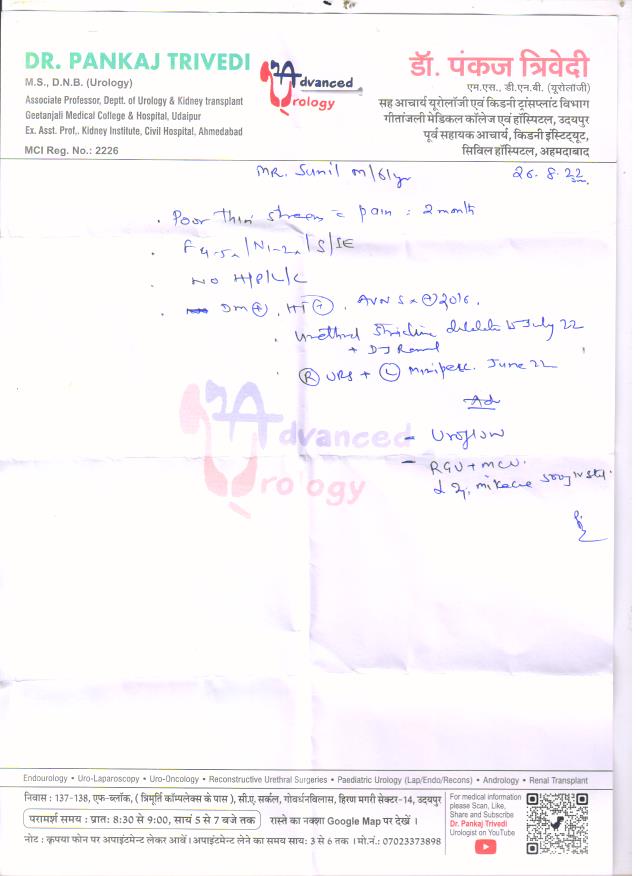 DR. PANKAJ TRIVEDI
M.S., D.N.B. (Urology)
Associate Professor, Deptt. of Urology & Kidney transplant
Geetanjali Medical College & Hospital, Udaipur
Ex. Asst. Prof., Kidney Institute, Civil Hospital, Ahmedabad
MCI Reg. No.: 2226
Advanced
Urology
डॉ. पंकज त्रिवेदी
एम.एस., डी.एन.बी. (यूरोलॉजी)
सह आचार्य यूरोलॉजी एवं किडनी ट्रांसप्लांट विभाग
गीतांजली मेडिकल कॉलेज एवं हॉस्पिटल, उदयपुर
पूर्व सहायक आचार्य, किडनी इंस्टिट्यूट,
सिविल हॉस्पिटल, अहमदाबाद
MR. Sunil M/61yr 26.8.22
. Poor thin stream = pain : 2 month
. F 4-5x / N 1-2x / S / SE
. NO H/P/L/C
. DM +, HT +, AVN Sx + 2016.
. Urethral Stricture dilatation 15 July 22
+ DJ Removal
. R URS + L Miniperc. June 22
Ad
- Uroflow
- RGU + MCU.
Inj. mikacin 500mg IV stat.
Advanced
Urology
Endourology • Uro-Laparoscopy • Uro-Oncology • Reconstructive Urethral Surgeries • Paediatric Urology (Lap/Endo/Recons) • Andrology • Renal Transplant
निवास : 137-138, एफ-ब्लॉक, ( त्रिमूर्ति कॉम्पलेक्स के पास ), सी.ए. सर्कल, गोवर्धनविलास, हिरण मगरी सेक्टर-14, उदयपुर
परामर्श समय : प्रातः 8:30 से 9:00, सायं 5 से 7 बजे तक रास्ते का नक्शा Google Map पर देखें ।
नोट : कृपया फोन पर अपाइंटमेन्ट लेकर आवें । अपाइंटमेन्ट लेने का समय सायः 3 से 6 तक । मो.नं.: 07023373898
For medical information
please Scan, Like,
Share and Subscribe
Dr. Pankaj Trivedi
Urologist on YouTube